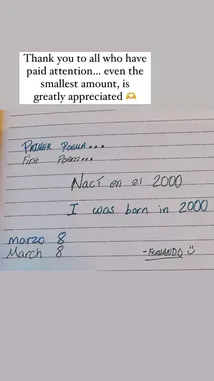 Thank you to all who have
paid attention... even the
smallest amount, is
greatly appreciated 🫶
PRIMER POEMA...
First Poem...
Nací en el 2000
I was born in 2000
marzo 8
March 8
-FERNANDO ☺